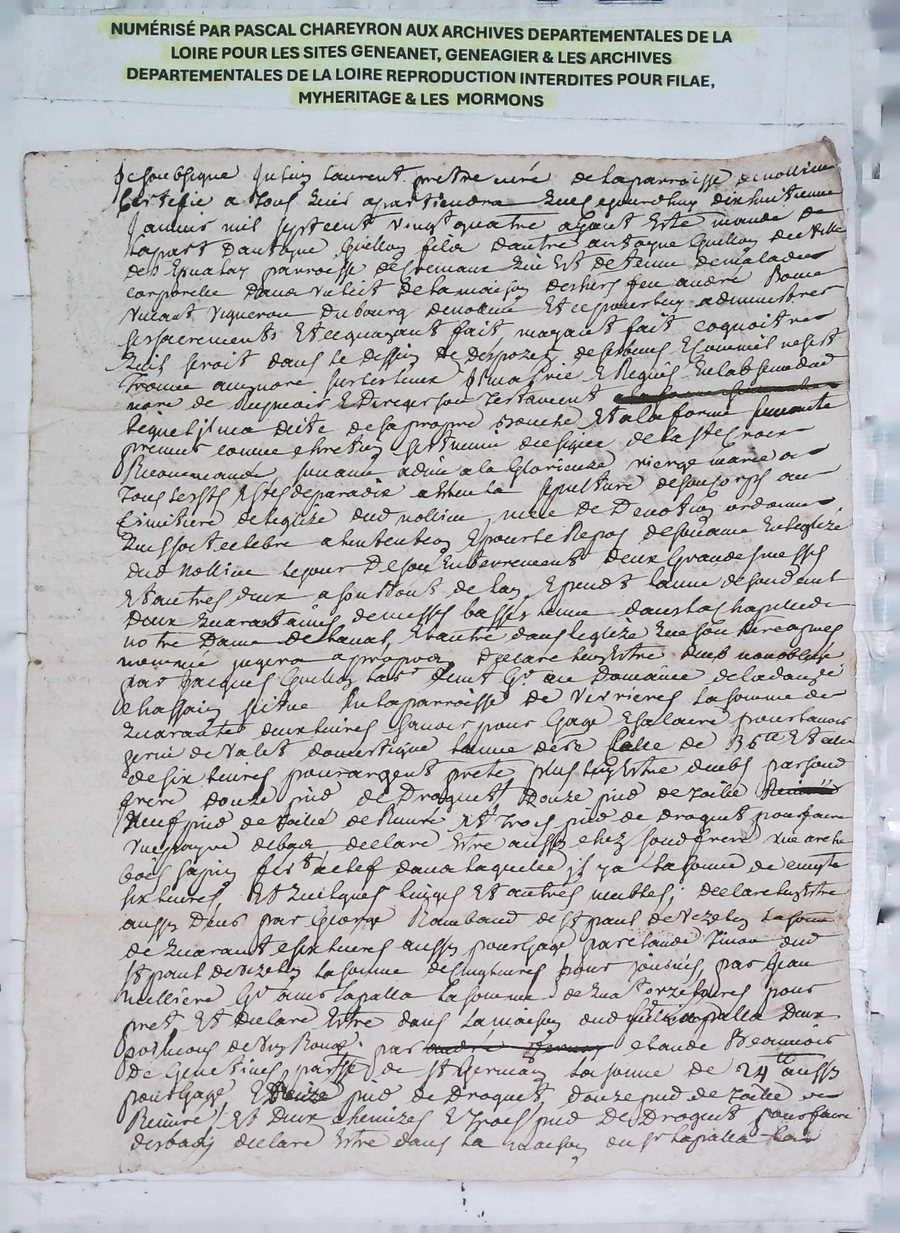 NUMÉRISÉ PAR PASCAL CHAREYRON AUX ARCHIVES DEPARTEMENTALES DE LA
LOIRE POUR LES SITES GENEANET, GENEAGIER & LES ARCHIVES
DEPARTEMENTALES DE LA LOIRE REPRODUCTION INTERDITES POUR FILAE,
MYHERITAGE & LES MORMONS
Je soubsigne Laurent pretre curé de la parroisse de nollieu
Certifie a tous quil apartiendra quce jourdhuy dixhuitieme
Janvier mil septcent vingt quatre ayant este mandé de
la part dantoyne Guillon fils dautre antoyne Guillon du ville
despinalay parroisse de Cremaux qui est detenu de maladie
corporelle dans un lict de la maison des hers feu andré
vivant vigneron du bourg de nollieu et ce pour luy administrer
ses sacrements et ce quayant fait, mayant fait coquoitre
quil seroit dans le dessein de dispozer de ses biens
trouvé aucnore sur les lieux Il ma prie & requis en labsence dud
nore de & Diriger son testament
lequel il ma dicté de sa propre bouche et a la forme suivante
premier comme chretien sest muni du signe de la ste Croix
Recommandé son ame a dieu a la Glorieuze vierge marie a
tous les sts & stes de paradis a esleu la sepulture de son corps au
Cimitiere de leglize dud nollieu, de Devotion ordonne
quil soit celebré a lintention & pour le Repos de son ame en leglize
dud nollieu le jour de son enterrement deux Grandes messes
et autres deux a son bout de lan, & pendt lanné de son deut
Deux quarantaines de messes basses lune dans la chapelle de
notre Dame de Laval, & lautre dans leglize que son
nommé jugera a propos, declare luy estre deub
par Jacques Guillon Gr au Domaine de
Chassain situé en la parroisse de verrieres la somme de
quarante deux livres scavoir pour Gage & salaire pour lavoir
servi de valet domestique lanné de 36tt et
de six livres pour argent prete plus luy estre deubs par sond
frere douze pied de Droguet Douze pied de toille
neuf pied de toille de et trois pied de droguet pour faire
une paire de bas declare estre aussi chez sond frere une arche
bois sapin fert a clef dans laquelle il y a la somme de
six livres, et quelques linges et autres meubles; declare luy estre
aussi Deub par George Rambaud de st paul de vezelin la somme
de quarante six livres aussi pour Gage par claude dud
st paul de vezelin la somme de cinq livres pour par Jean
Gr au sr lapalla la somme de quatorze livres pour
pret et declare estre dans la maison dud lapalla Deux
de vin Rouge: par claude Beaunois
De Genetines parsse de st Germain la somme de 24tt aussi
pour Gage, & Douze pied de Droguet douze pied de toille
et Deux chemizes & trois pied de Droguet pour faire
des bas, declare estre dans la maison du sr lapalla